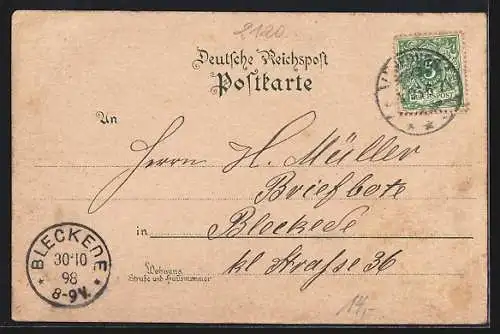 2120
Deutsche Reichspost
Postkarte
An
Herrn H. Müller
Briefbote
in Bleckede
kl Strasse 36
Wohnung
Strasse und Hausnummer
BLECKEDE
30.10
98
8-9V.
14,-
5